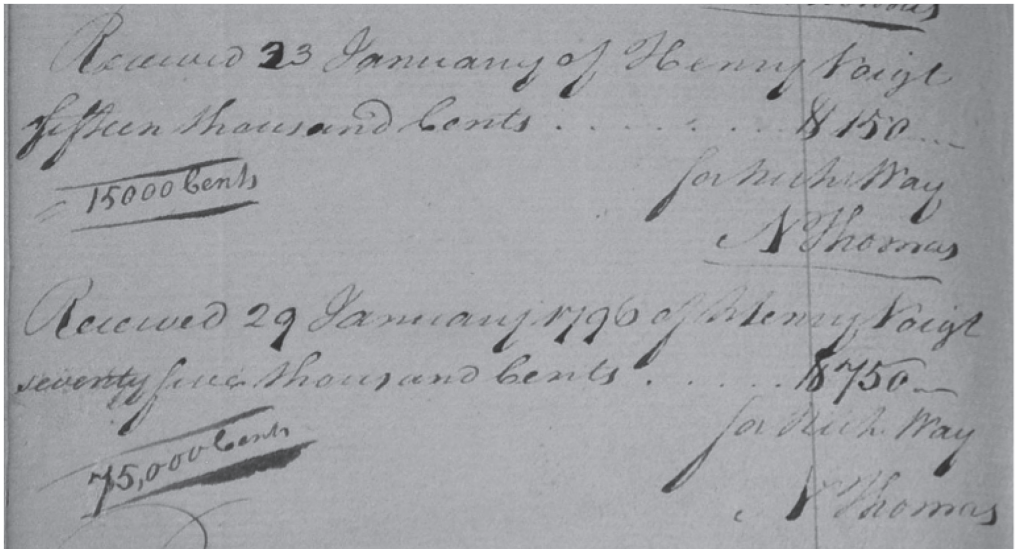 Received 23 January of Henry Voigt
fifteen thousand Cents . . . . . . . . $ 150
15000 Cents
for Nichs. Way
N Thomas
Received 29 January 1796 of Henry Voigt
seventy five thousand Cents . . . . . . $ 750
75,000 Cents
for Nich. Way
N Thomas